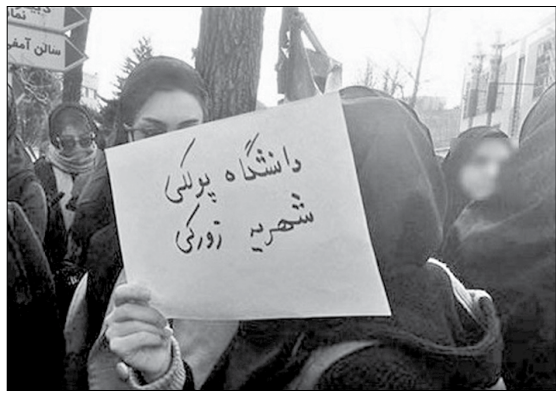 نما
سالن آمفی
دانشگاه پولکی
شهریه زورکی